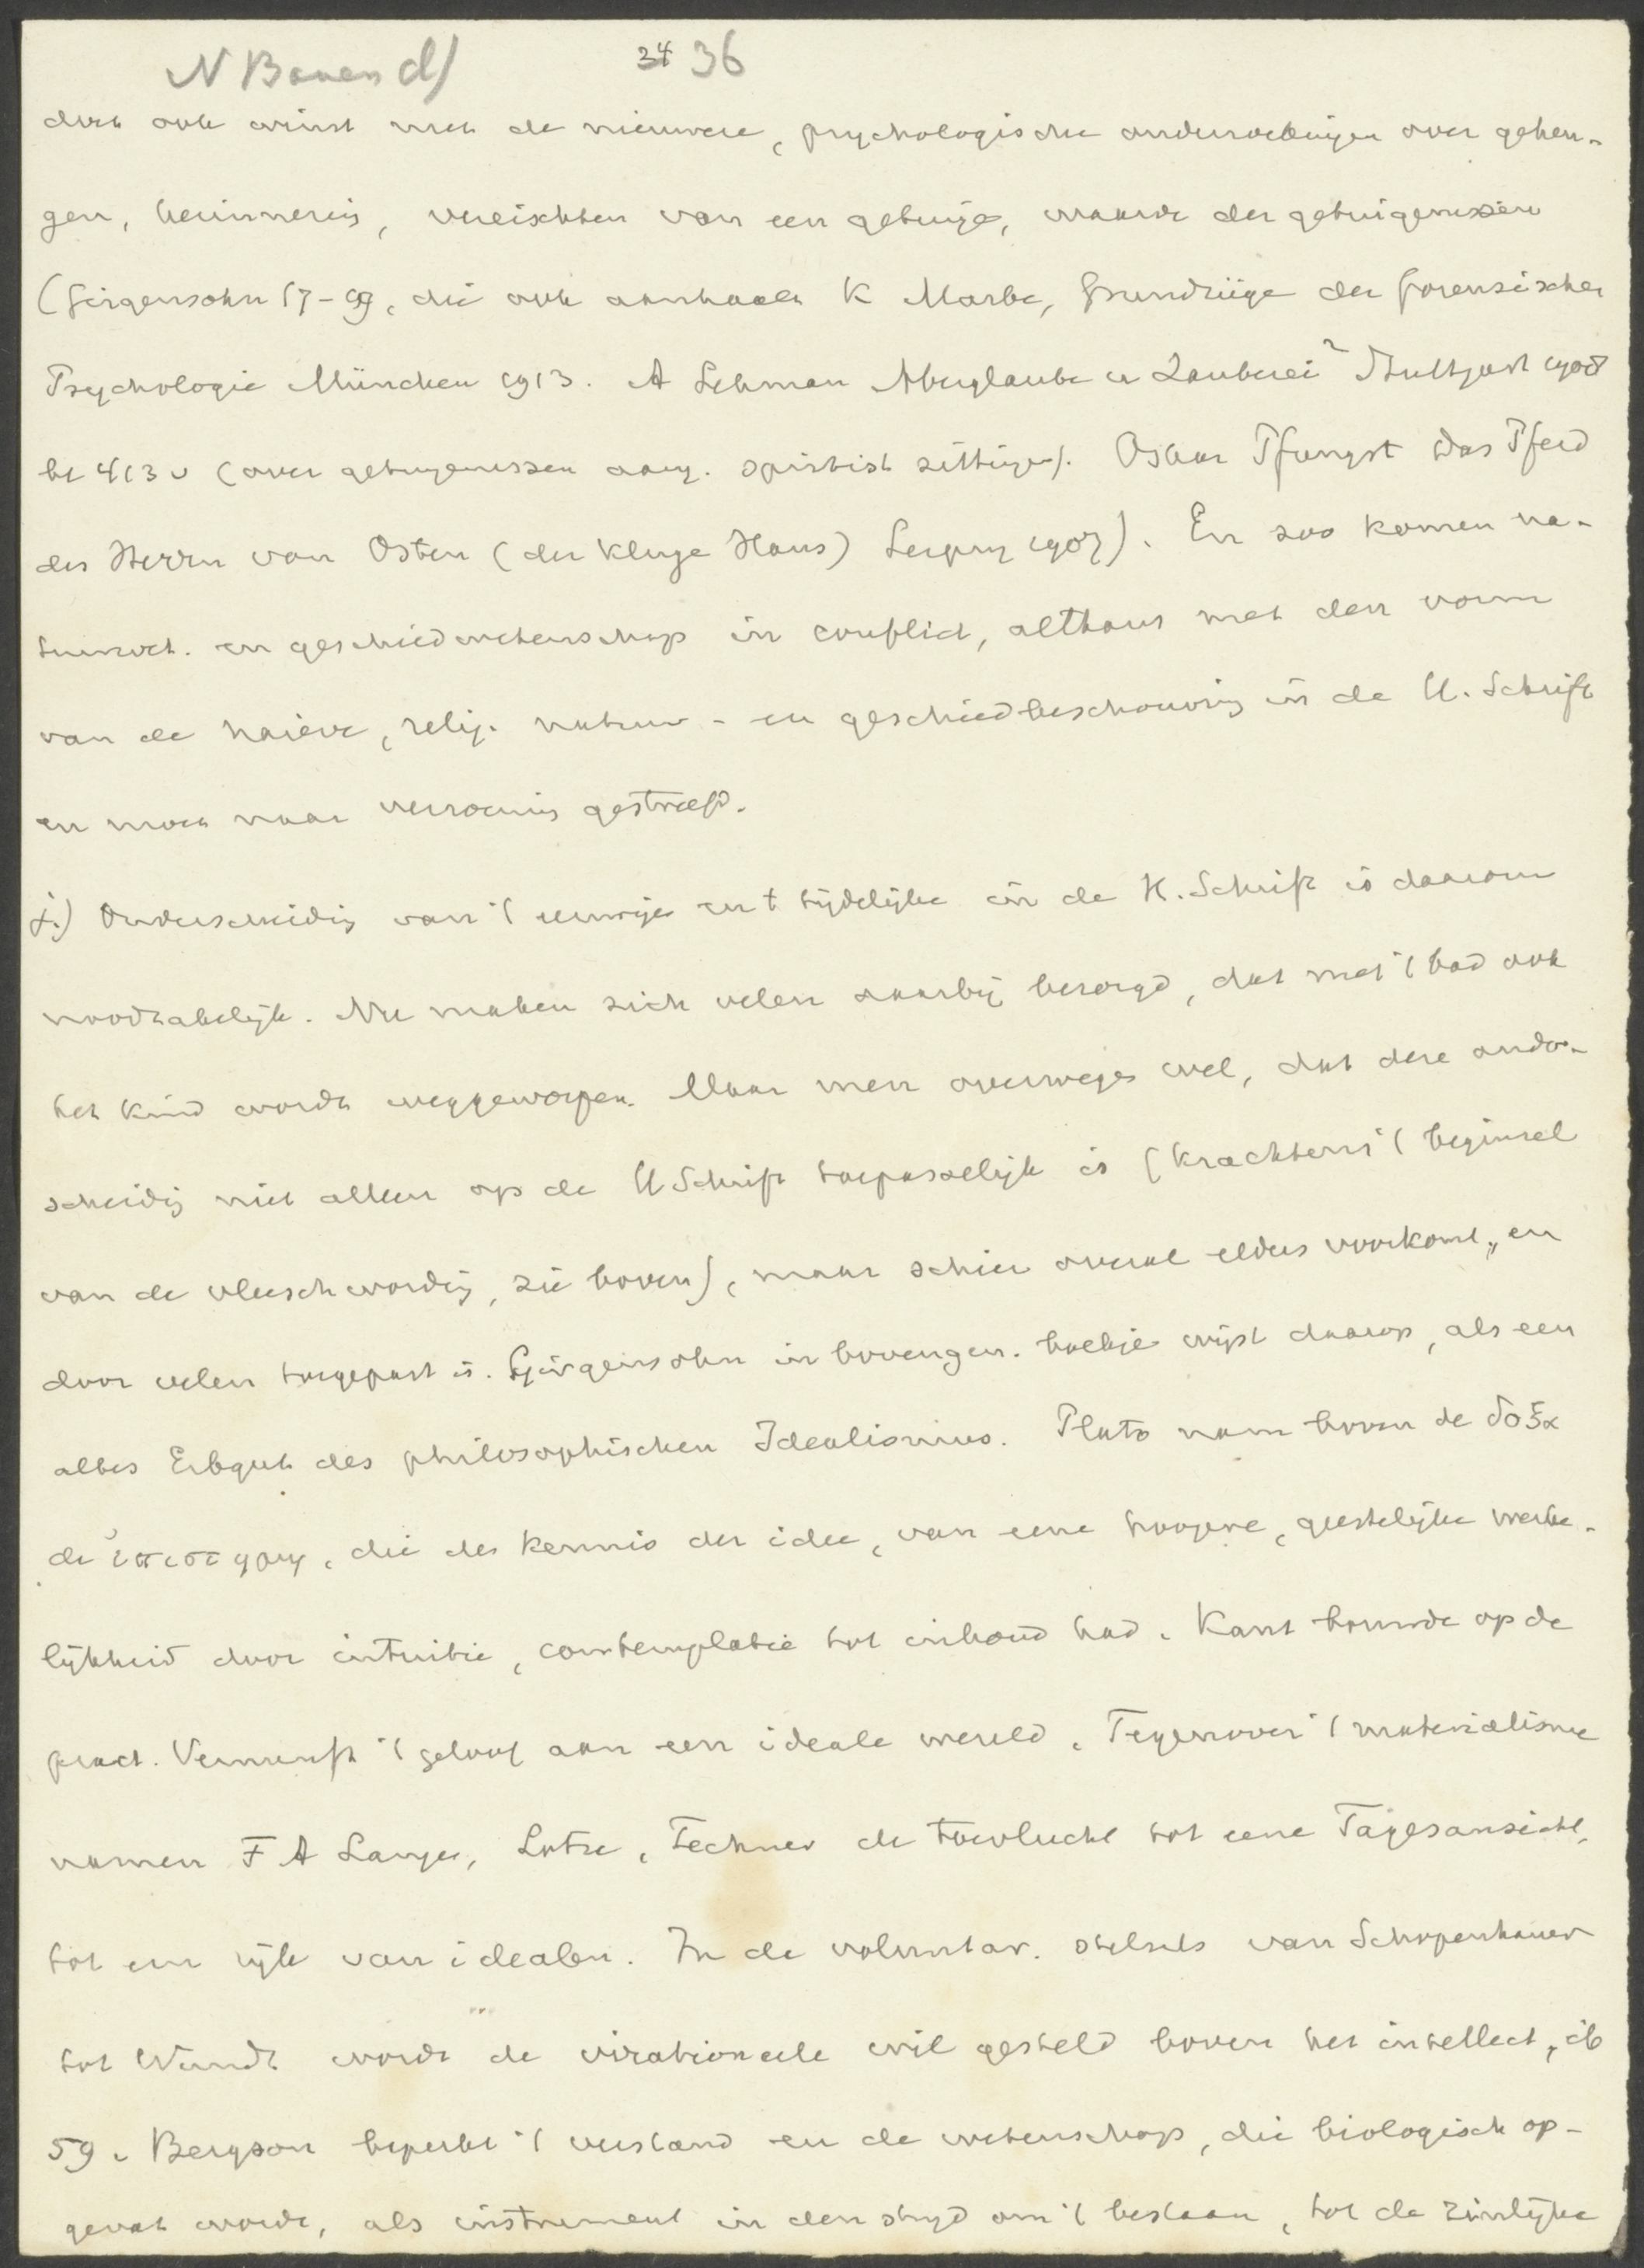 N Bauen d)
34 36
doch ook winst met de nieuwere, psychologische onderzoekingen over geheu-
gen, herinnering, vereischten van een getuige, waarde der getuigenissen
(Girgensohn 57-59, die ook aanhaalt K Marbe, Grundzüge der forensischen
Psychologie München 1913. A Lehman Aberglaube u Zauberei² Stuttgart 1908
bl 413 v (over getuigenissen aang. spiritist zittingen). Oskar Pfungst Das Pferd
des Herrn von Osten (der kluge Hans) Leipzig 1907). En zoo komen na-
tuurwet. en geschiedwetenschap in conflict, althans met den vorm
van de naieve, relig. natuur- en geschiedbeschouwing in de H. Schrift
en moet naar verzoening gestreefd.
j.) Onderscheiding van 't eeuwige en t tijdelijke in de H. Schrift is daarom
noodzakelijk. Nu maken zich velen daarbij bezorgd, dat met 't bad ook
het kind wordt weggeworpen. Maar men overwege wel, dat deze onder-
scheidig niet alleen op de H Schrift toepasselijk is (krachtens 't beginsel
van de vleeschwordig, zie boven), maar schier overal elders voorkomt, en
door velen toegepast is. Girgensohn in bovengen. boekje wijst daarop, als een
altes Erbgut des philosophischen Idealismus. Plato nam boven de δοξα
de ἐπιστημη, die de kennis der idee, van eene hoogere, geestelijke werke-
lijkheid door intuitie, contemplatie tot inhoud had. Kant bouwde op de
pract. Vernunft 't geloof aan een ideale wereld. Tegenover 't materialisme
namen F A Lange, Lotze, Fechner de toevlucht tot eene Tagesansicht,
tot een rijk van idealen. In de voluntar. stelsels van Schopenhauer
tot Wundt wordt de irrationeele wil gesteld boven het intellect, ib
59. Bergson beperkt 't verstand en de wetenschap, die biologisch op-
gevat wordt, als instrument in den strijd om 't bestaan, tot de zinlijke